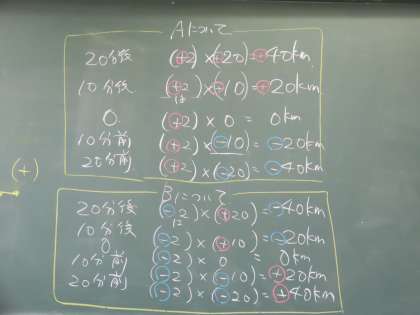 Aについて
20分後 (+2)×(+20)=+40km
10分後 (+2)×(+10)=+20km
0 (+2)×0=0km
10分前 (+2)×(-10)=-20km
20分前 (+2)×(-20)=-40km
(+)
Bについて
20分後 (-2)×(+20)=-40km
10分後 (-2)×(+10)=-20km
0 (-2)×0=0km
10分前 (-2)×(-10)=+20km
20分前 (-2)×(-20)=+40km